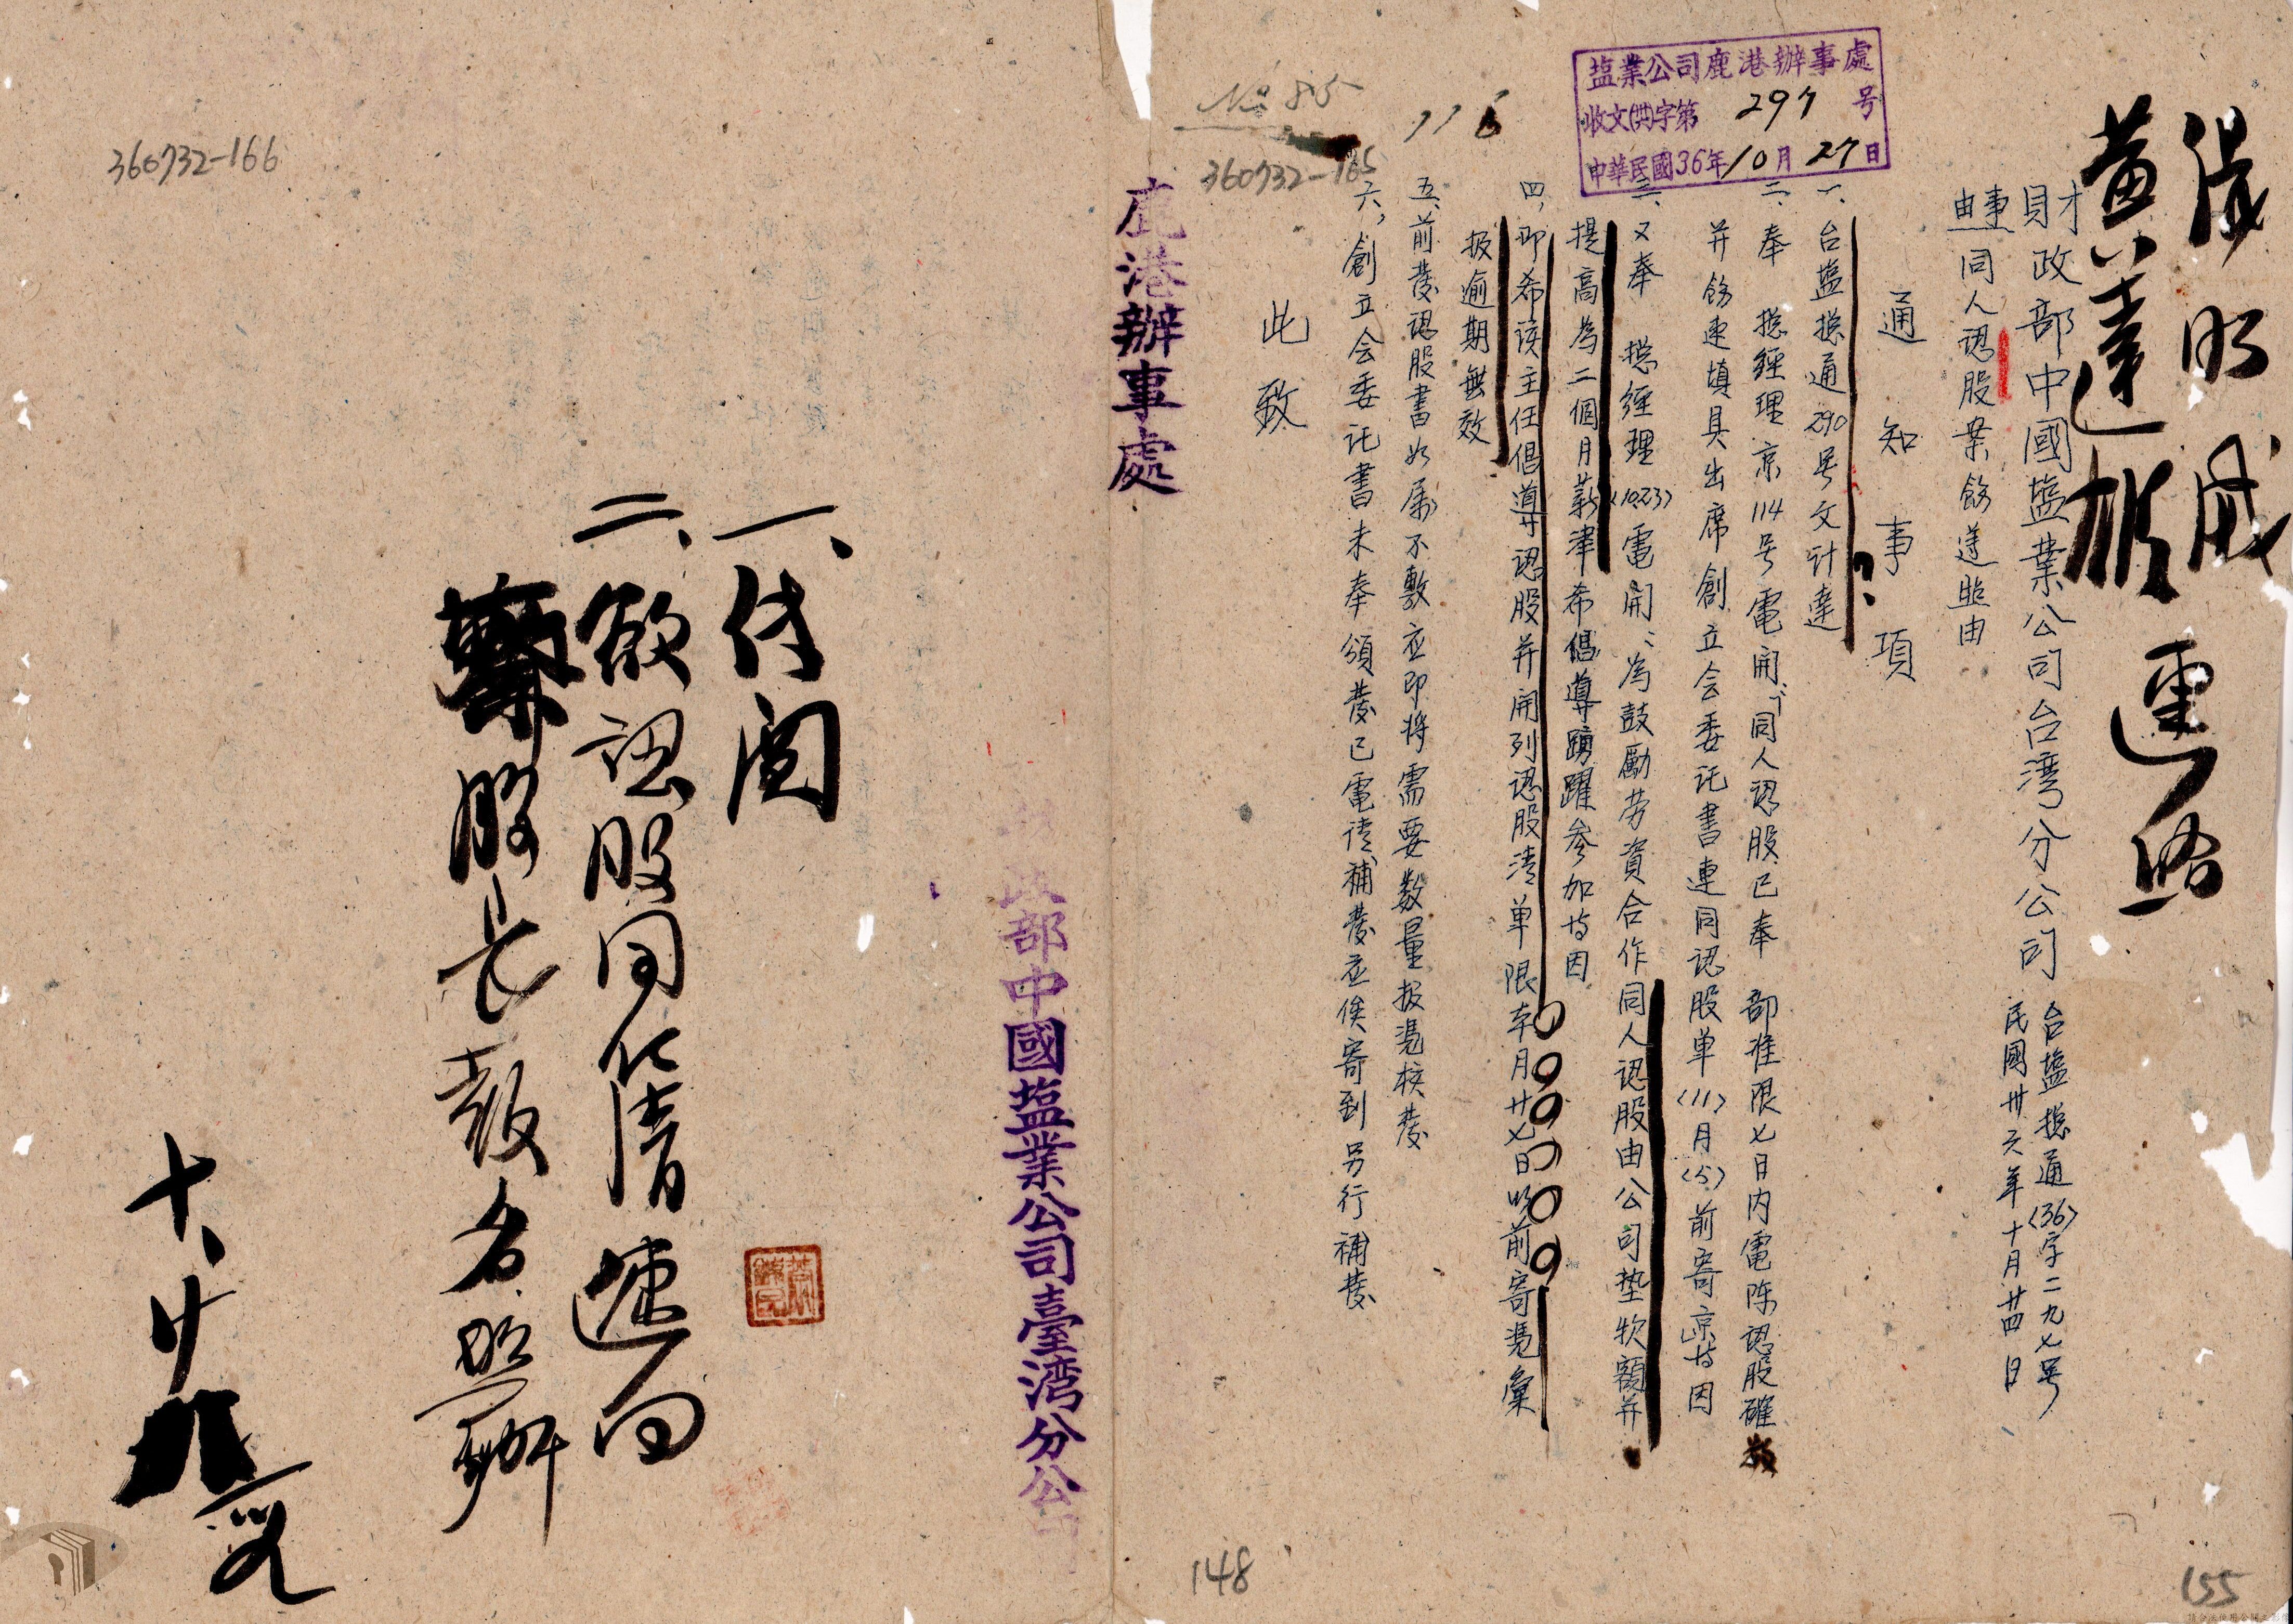 塩業公司鹿港辦事處
收文(共)字第 297 号
中華民國36年10月27日
財政部中國塩業公司台湾分公司
台塩總通(36)字二九七号
民國卅六年十月廿四日
事由 同人認股案飭遵照由
通知事項
一、台塩總通290号文計達
二、奉 總經理京114号電開:「同人認股已奉 部准限七日内電陈認股確数
并飭速填具出席創立会委託書連同認股单(11)月(5)前寄京」等因
三、又奉 總經理(1023)電開:為鼓勵劳資合作同人認股由公司垫欵額并
提高為二個月薪津希倡導踴躍參加等因
四、即希该主任倡導認股并開列認股清单限本月廿七日以前寄凴彙
报逾期無效
五、前發認股書如屬不敷应即将需要数量报凴核發
六、創立会委託書未奉頒發已電请補發应俟寄到另行補發
此致
鹿港辦事處
財政部中國塩業公司臺湾分公司
一、传阅
二、欲認股同仁請速向
蔡股長報名照辦
十、廿
No 85
116
360732-165
360732-166
148
155